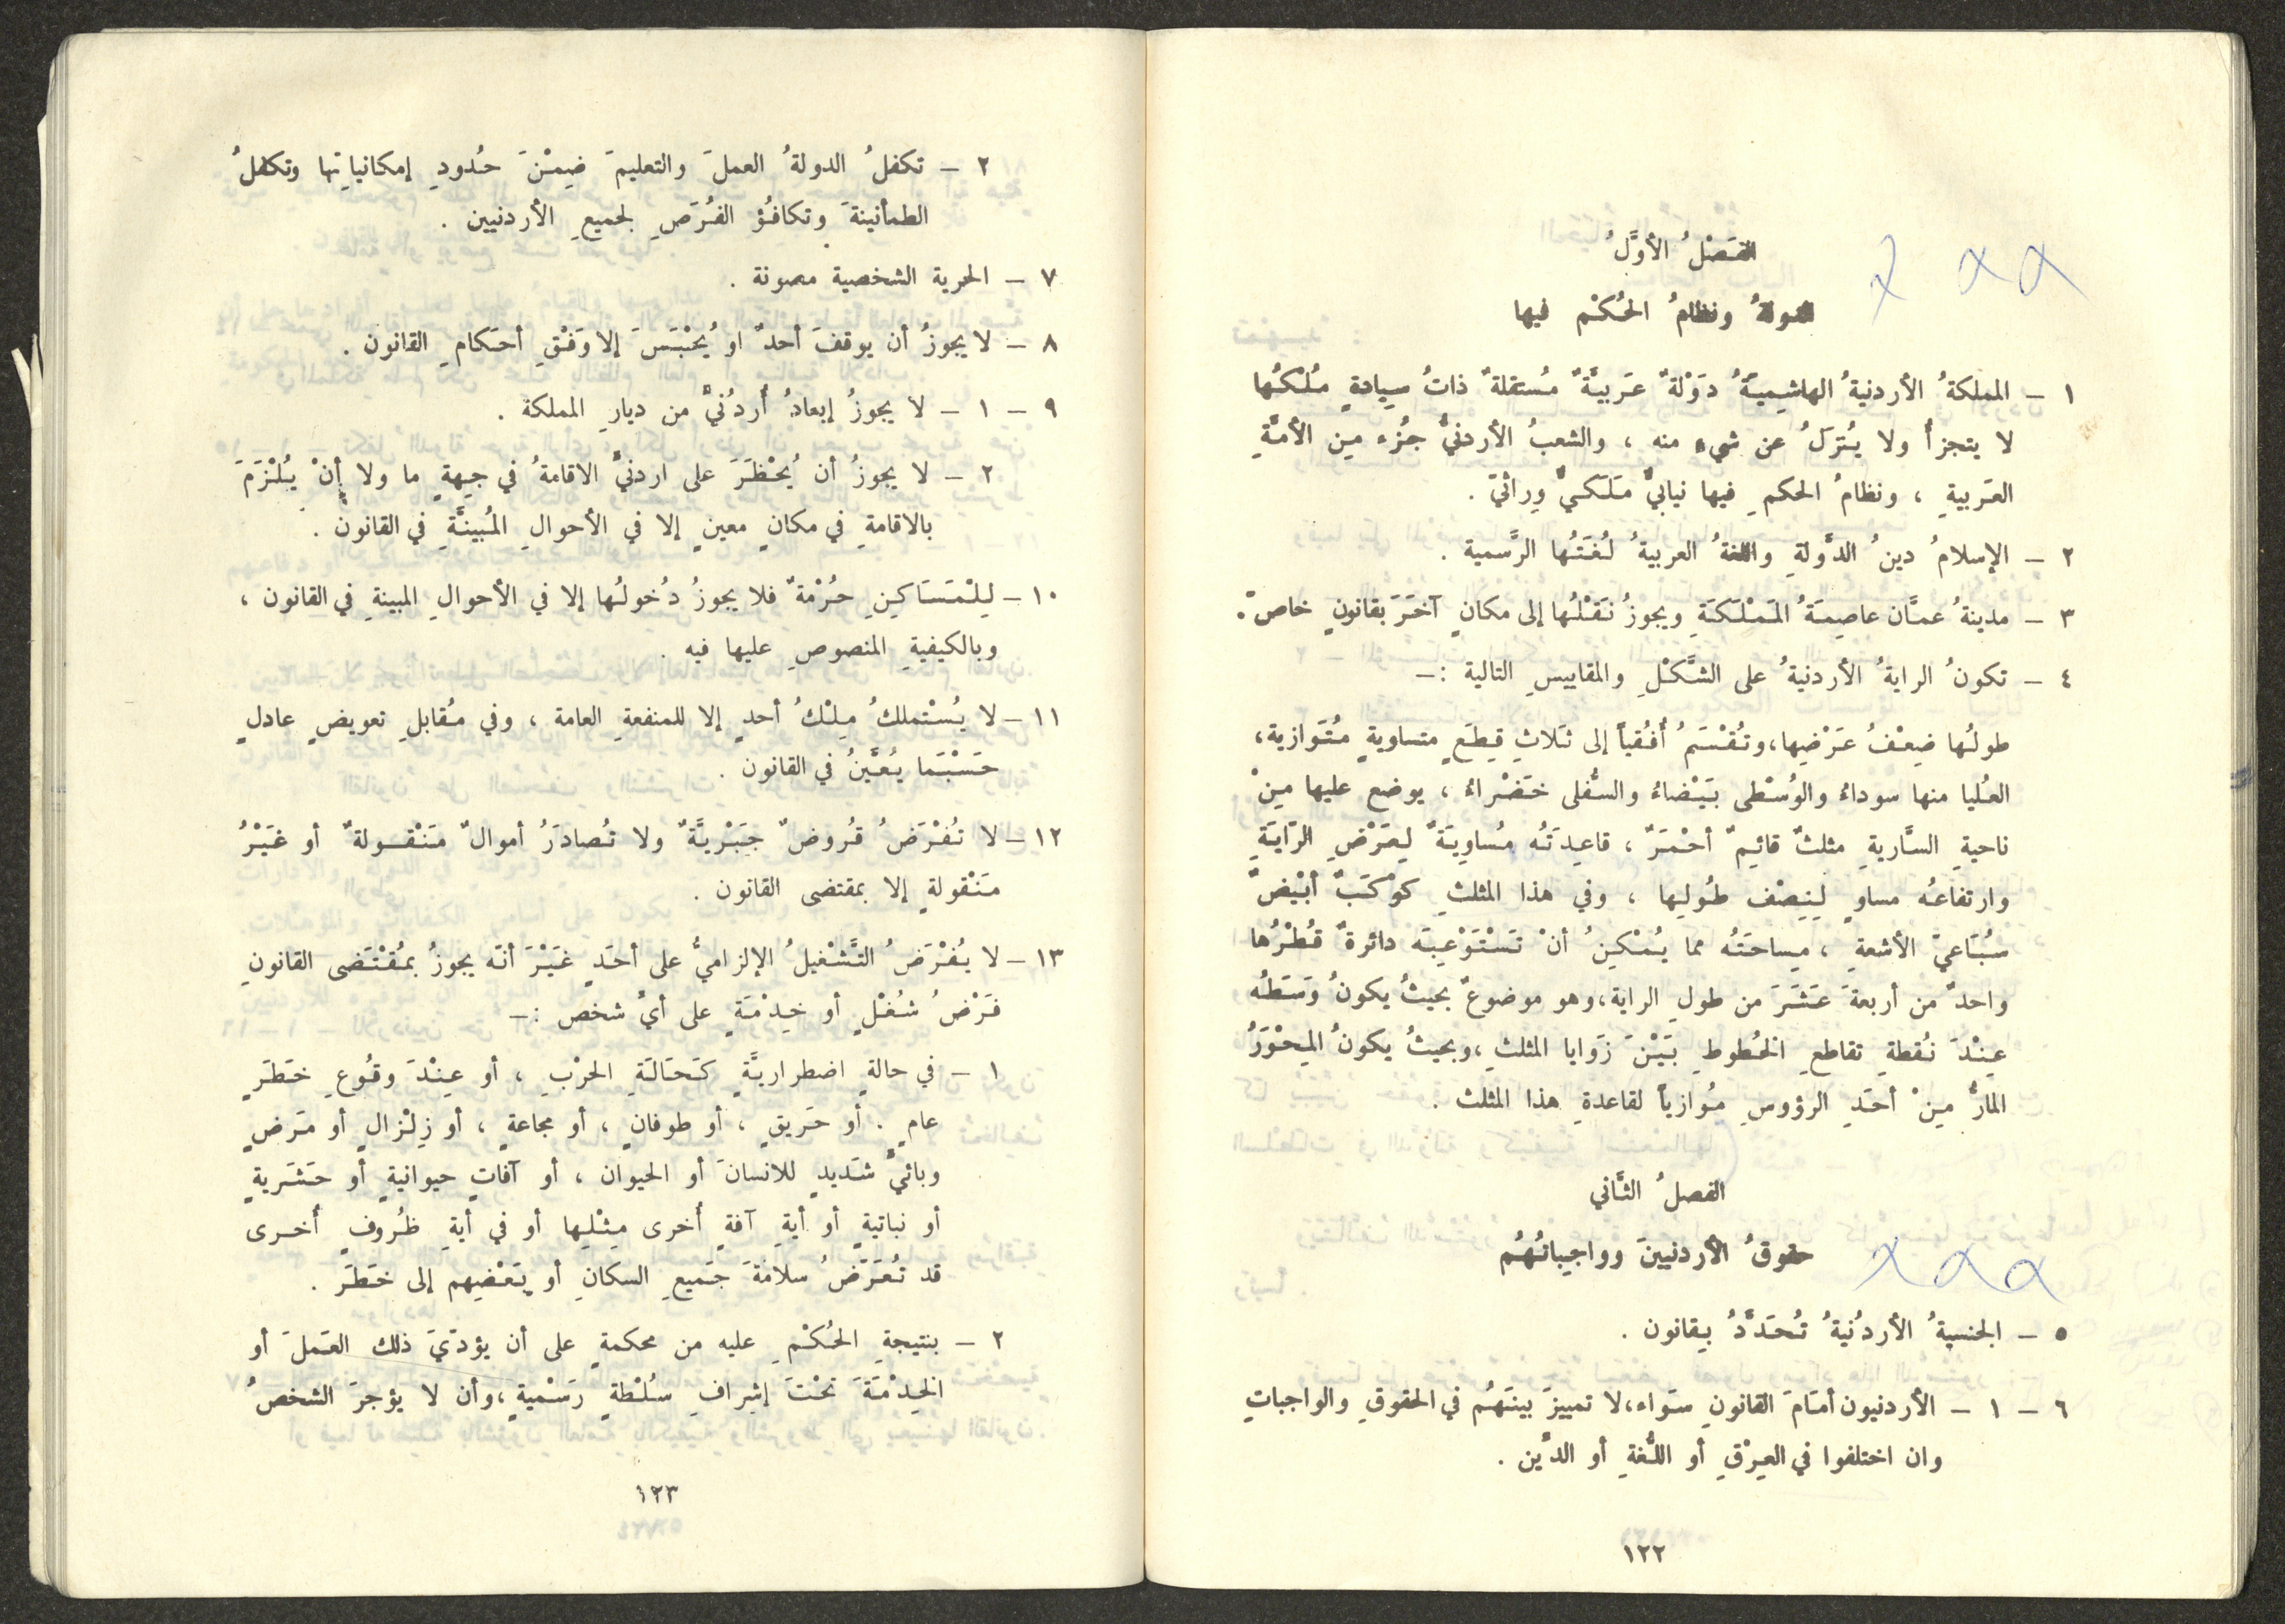 الفَصْلُ الأوَّلُ
الدولةُ ونظامُ الحُكْم فيها
١ – المملكةُ الأردنيةُ الهاشِميَّةُ دَوْلةٌ عَربيَّةٌ مُستقلةٌ ذاتُ سِيادةٍ مُلْكُها
لا يتجزأ ولا يُنزَلُ عن شيءٍ منه ، والشعبُ الأردنيُّ جُزء مِن الأمَّةِ
العَربيةِ ، ونظامُ الحكمِ فيها نيابيٌّ مَلَكيٌّ وِراثيّ .
٢ – الإسلامُ دينُ الدَّولةِ واللغةُ العربيةُ لُغَتُها الرَّسمية .
٣ – مدينةُ عمَّان عاصِمَةُ المَمْلَكَةِ ويجوزُ نَقْلُها إلى مكانٍ آخَرَ بقانونٍ خاصّ .
٤ – تكونُ الرايةُ الأردنيةُ على الشَّكْلِ والمقاييسِ التالية :–
طولُها ضِعْفُ عَرْضِها، وتُقْسَمُ أُفُقياً إلى ثَلاثِ قِطَعٍ متساويةٍ مُتَوازية،
العُليا منها سوداءُ والوُسْطى بَيْضاءُ والسُّفلى خَضْراءُ ، يوضع عليها مِنْ
ناحيةِ السَّاريةِ مثلثٌ قائِمٌ أحْمَرٌ ، قاعِدَتُه مُساوِيَةٌ لِعَرْضِ الرّايَةِ
وارتفاعُه مساوٍ لِنِصْف طُولِها ، وفي هذا المثلثِ كوْكَبٌ أبْيَضٌ
سُبُاعيّ الأشعةِ ، مِساحَتُه مما يُمْكِنُ أنْ تَسْتَوْعِبَه دائرةٌ قُطْرُها
واحدٌ من أربعةَ عَشَرَ من طولِ الراية، وهو موضوعٌ بحيثُ يكونُ وَسَطُه
عِنْدَ نُقطةِ تقاطعِ الخُطوطِ بَيْنَ زَوايا المثلثِ، وبحيثُ يكونُ المِحْوَرُ
المارُّ مِنْ أحَدِ الرؤوسِ مُوازياً لقاعدةِ هذا المثلث .
الفصلُ الثَّاني
حقوقُ الأردنيينَ وواجِباتُهُم
٥ – الجنسيةُ الأردُنيةُ تُحَدَّدُ بِقانون .
٦ – ١ – الأردنيون أمَامَ القانونِ سَواء، لا تمييزَ بينَهُم في الحقوقِ والواجباتِ
وان اختلفوا في العِرْقِ أو اللُّغةِ أو الدِّين .
١٢٢
٢ – تكفلُ الدولةُ العملَ والتعليمَ ضِمْنَ حُدودِ إمكانياتِها وتكفلُ
الطمأنينةَ وتكافُؤ الفُرَصِ لجميعِ الأردنيين .
٧ – الحرية الشخصية مصونة .
٨ – لا يجوزُ أن يوقفَ أحدٌ او يُحْبَسَ إلا وَفْقِ أحكامِ القانون .
٩ – ١ – لا يجوزُ إبعادُ أردُنيٍّ من ديارِ المملكة .
٢ – لا يجوزُ أن يُحْظَرَ على اردنيٍّ الاقامةُ في جِهةٍ ما ولا أنْ يُلْزَمَ
بالاقامةِ في مكانٍ معينٍ إلا في الأحوالِ المُبينَّةِ في القانون .
١٠ – لِلْمَسَاكِنِ حُرْمَةٌ فلا يجوزُ دُخولُها إلا في الأحوالِ المبينةِ في القانون ،
وبالكيفيةِ المنصوصِ عليها فيه .
١١ – لا يُسْتملكُ مِلْكُ أحدٍ إلا للمنفعةِ العامة ، وفي مُقابلِ تعويضٍ عادلٍ
حَسْبَمَا يُعَيَّنُ في القانون .
١٢ – لا تُفْرَضُ قُروضٌ جَبْريَّةٌ ولا تُصادَرُ أموالٌ مَنْقـولةٌ أو غَيْرُ
مَنْقولةٍ إلا بمقتضى القانون .
١٣ – لا يُفْرَضُ التَّشْغيلُ الإلزاميُّ على أحَدٍ غَيْرَ أنّه يجوزُ بمُقْتَضى القانونِ
فَرْضُ شُغْلٍ أو خِدْمَةٍ على أيِّ شخص :–
١ – في حالةٍ اضطراريَّةٍ كَحَالَةِ الحرْبِ ، أو عِنْدَ وقُوعِ خَطَرٍ
عامٍ . أو حَريقٍ ، أو طوفانٍ ، أو مجاعةٍ ، أو زِلْزالٍ أو مَرضٍ
وبائيٍّ شَديدٍ للانسانَ أو الحيوان ، أو آفاتٍ حيوانيةٍ أو حَشَريةٍ
أو نباتيةٍ أو أيةِ آفةٍ أُخرى مِثْلِها أو في أيةِ ظُروفٍ أُخـرى
قد تُعَرِّضُ سلامَةَ جَميعِ السكانِ أو بَعْضِهم إلى خَطَر .
٢ – بنتيجةِ الحُكْمِ عليه من محكمةٍ على أن يؤدّيَ ذلك العَملَ أو
الخِدْمَةَ تحْتَ إشرافِ سُلْطةٍ رَسْميةٍ، وأن لا يؤجرَ الشخصُ
١٢٣